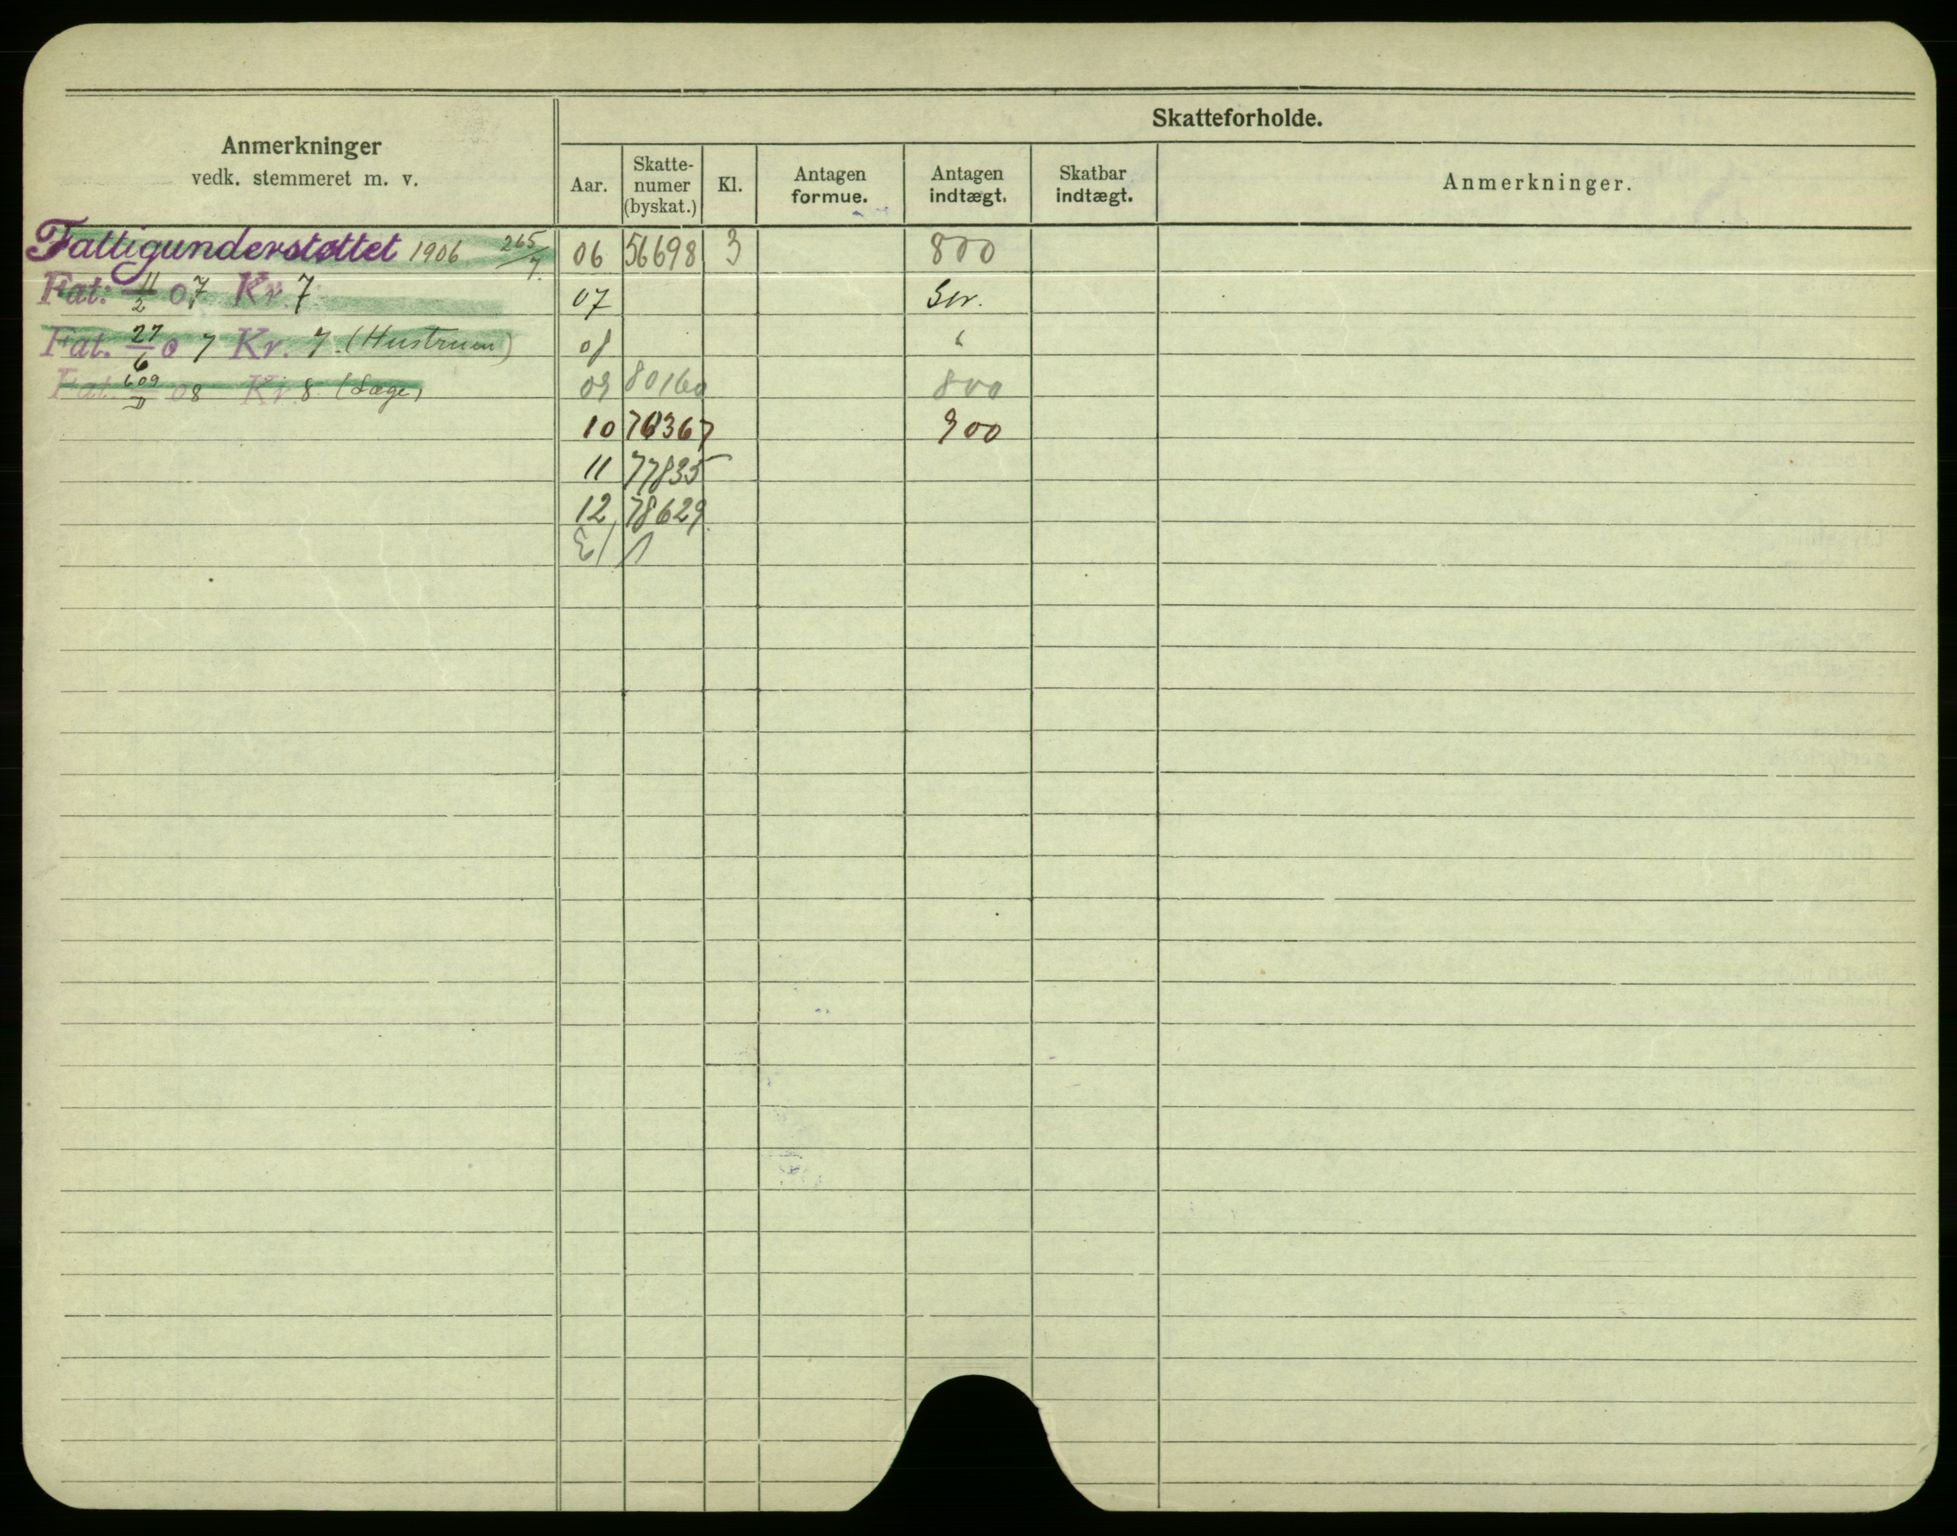 Skatteforholde.
Anmerkninger
vedk. stemmeret m. v.
Aar. Skatte-numer (byskat.) Kl. Antagen formue. Antagen indtægt. Skatbar indtægt. Anmerkninger.
Fattigunderstøttet 1906 265/7. 06 56698 3 800
Fat. 11/2 07 Kr. 7 07
Fat. 27/6 07 Kr. 7. (Hustruen) 08 "
Fat. 609 08 Kr. 8 (Læge) 09 80160 800
10 900
11 77835
12 78629